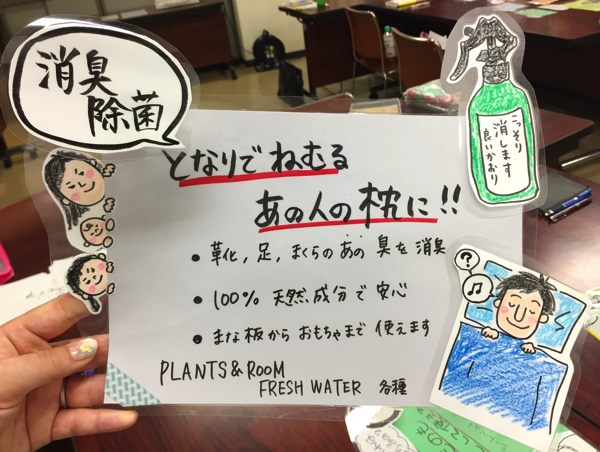 消臭
除菌
となりでねむる
あの人の枕に!!
こっそり
消します
良いかおり
• 革化,足,まくらのあの 臭を消臭
• 100% 天然成分で安心
• まな板から おもちゃまで 使えます
?
♪
PLANTS&ROOM
FRESH WATER 各種